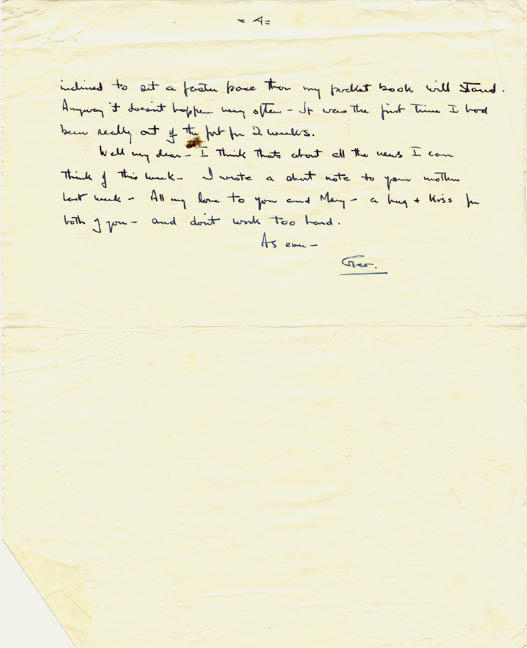 = 4 =
inclined to set a faster pace than my pocket book will stand.
Anyway it doesn't happen very often - It was the first time I had
been really out of the fort for 2 weeks.
Well my dear - I think thats about all the news I can
think of this week - I wrote a short note to your mother
last week - All my love to you and Mary - a hug + kiss for
both of you - and don't work too hard.
As ever -